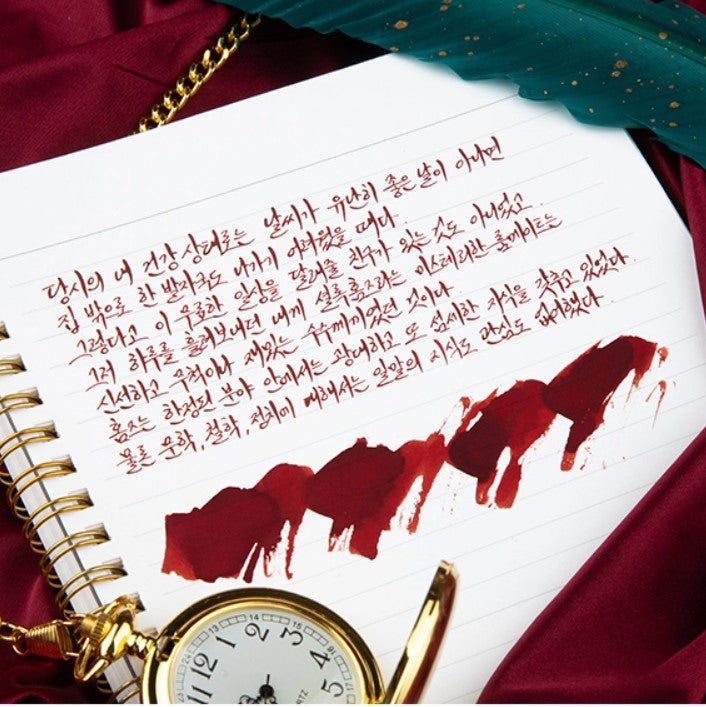 당시의 내 건강상태로는 날씨가 유난히 좋은 날이 아니면
집 밖으로 한 발자국도 나가기 어려웠을 때다.
그렇다고 이 무료한 일상을 달래줄 친구가 있는 것도 아니었고
그저 하루를 흘려보내던 내게 셜록홈즈라는 미스테리한 룸메이트는
신선하고 무척이나 재밌는 수수께끼였던 것이다.
홈즈는 한정된 분야 안에서는 광대하고 또 섬세한 지식을 갖추고 있었다.
물론 문학, 철학, 정치에 대해서는 일말의 지식도 관심도 없어했다.
12 1 2 3 4
24 13 14 15
QUARTZ